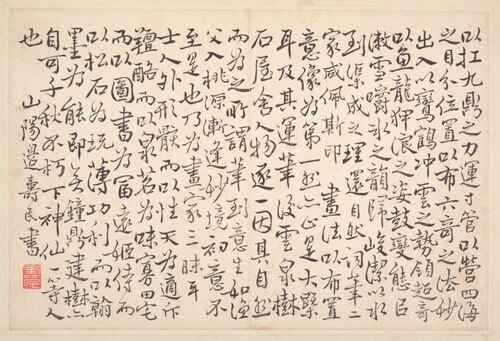 以扛九鼎之力運寸管以營四海
之目分位置以布六奇之法妙
出入以鸞鶴冲雲之勢領超奇
以魚龍狎浪之姿鼓變態臣
漱雪嚼冰之韻歸峻潔以水
到渠成之理還自然詞筆二
家咸佩斯印 畫法以布置
意像為第一然亦止是大槩
耳及其運筆後雲泉樹
石屋舍人物逐一因其自然
而為之所謂筆到意生如漁
父入桃源漸逢妙境初意不
至是也乃為畫家三昧耳
士人外形骸而以性天為適下
羶酪而以泉茗為味寡田宅
而以圖書為富遠姬侍而
以松石為玩薄功利而以翰
墨為能即無鐘鼎建樹
自可千秋不朽下神仙一等人
也 山陽邊壽民書